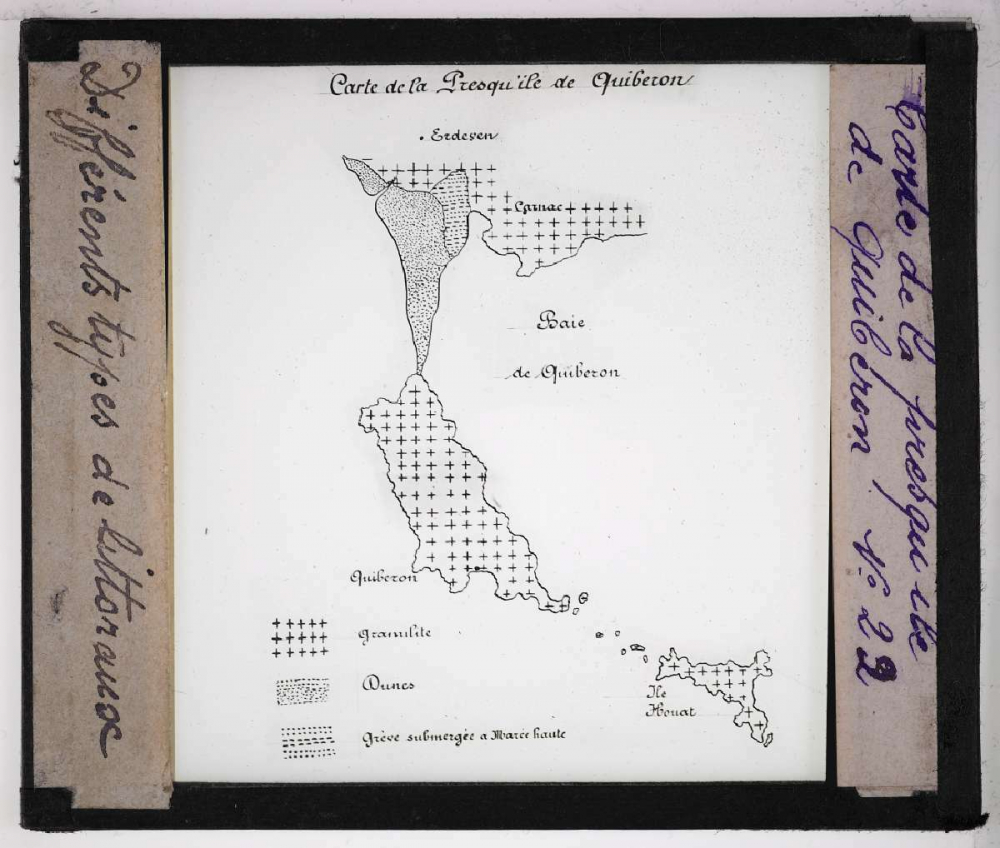 Différents types de littoraux
Carte de la Presqu'île de Quiberon
Erdeven
Carnac
Baie
de Quiberon
Quiberon
Granulite
Dunes
Grève submergée a Marée haute
Ile
Houat
Carte de la presqu'ile
de Quiberon No 22